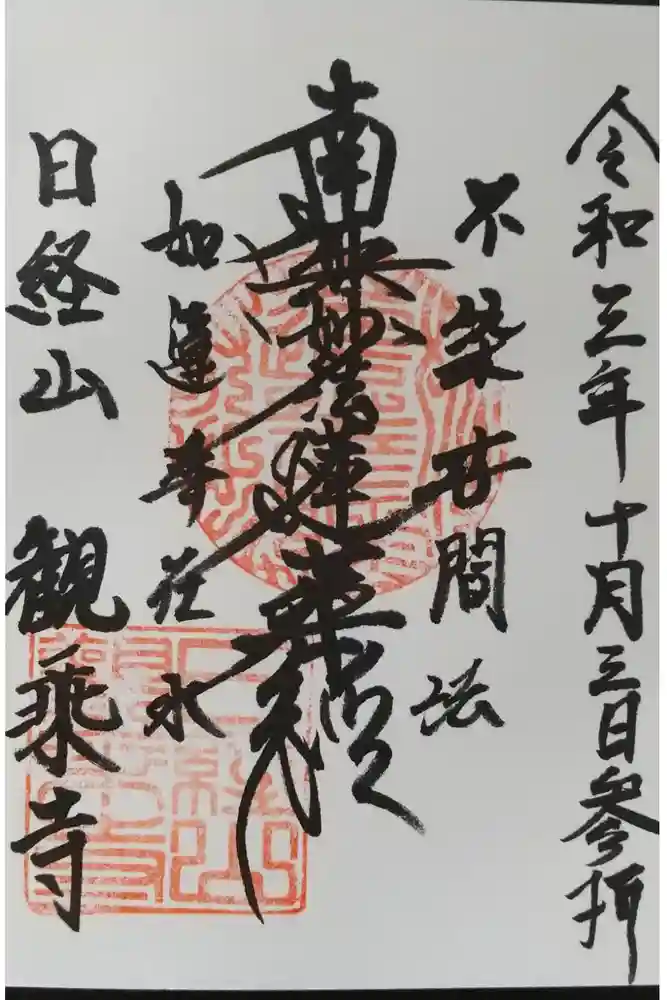 令和三年十月三日参拝
不染世間法
南無妙法蓮華経
如蓮華在水
日経山 観乗寺